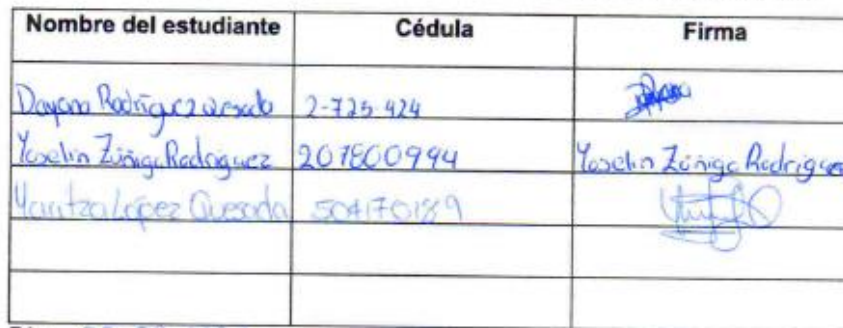 Nombre del estudiante Cédula Firma
Dayana Rodríguez Quesada 2-725-424
Yoselin Zúñiga Rodríguez 207800994 Yoselin Zúñiga Rodríguez
Yaritza López Quesada 504170189